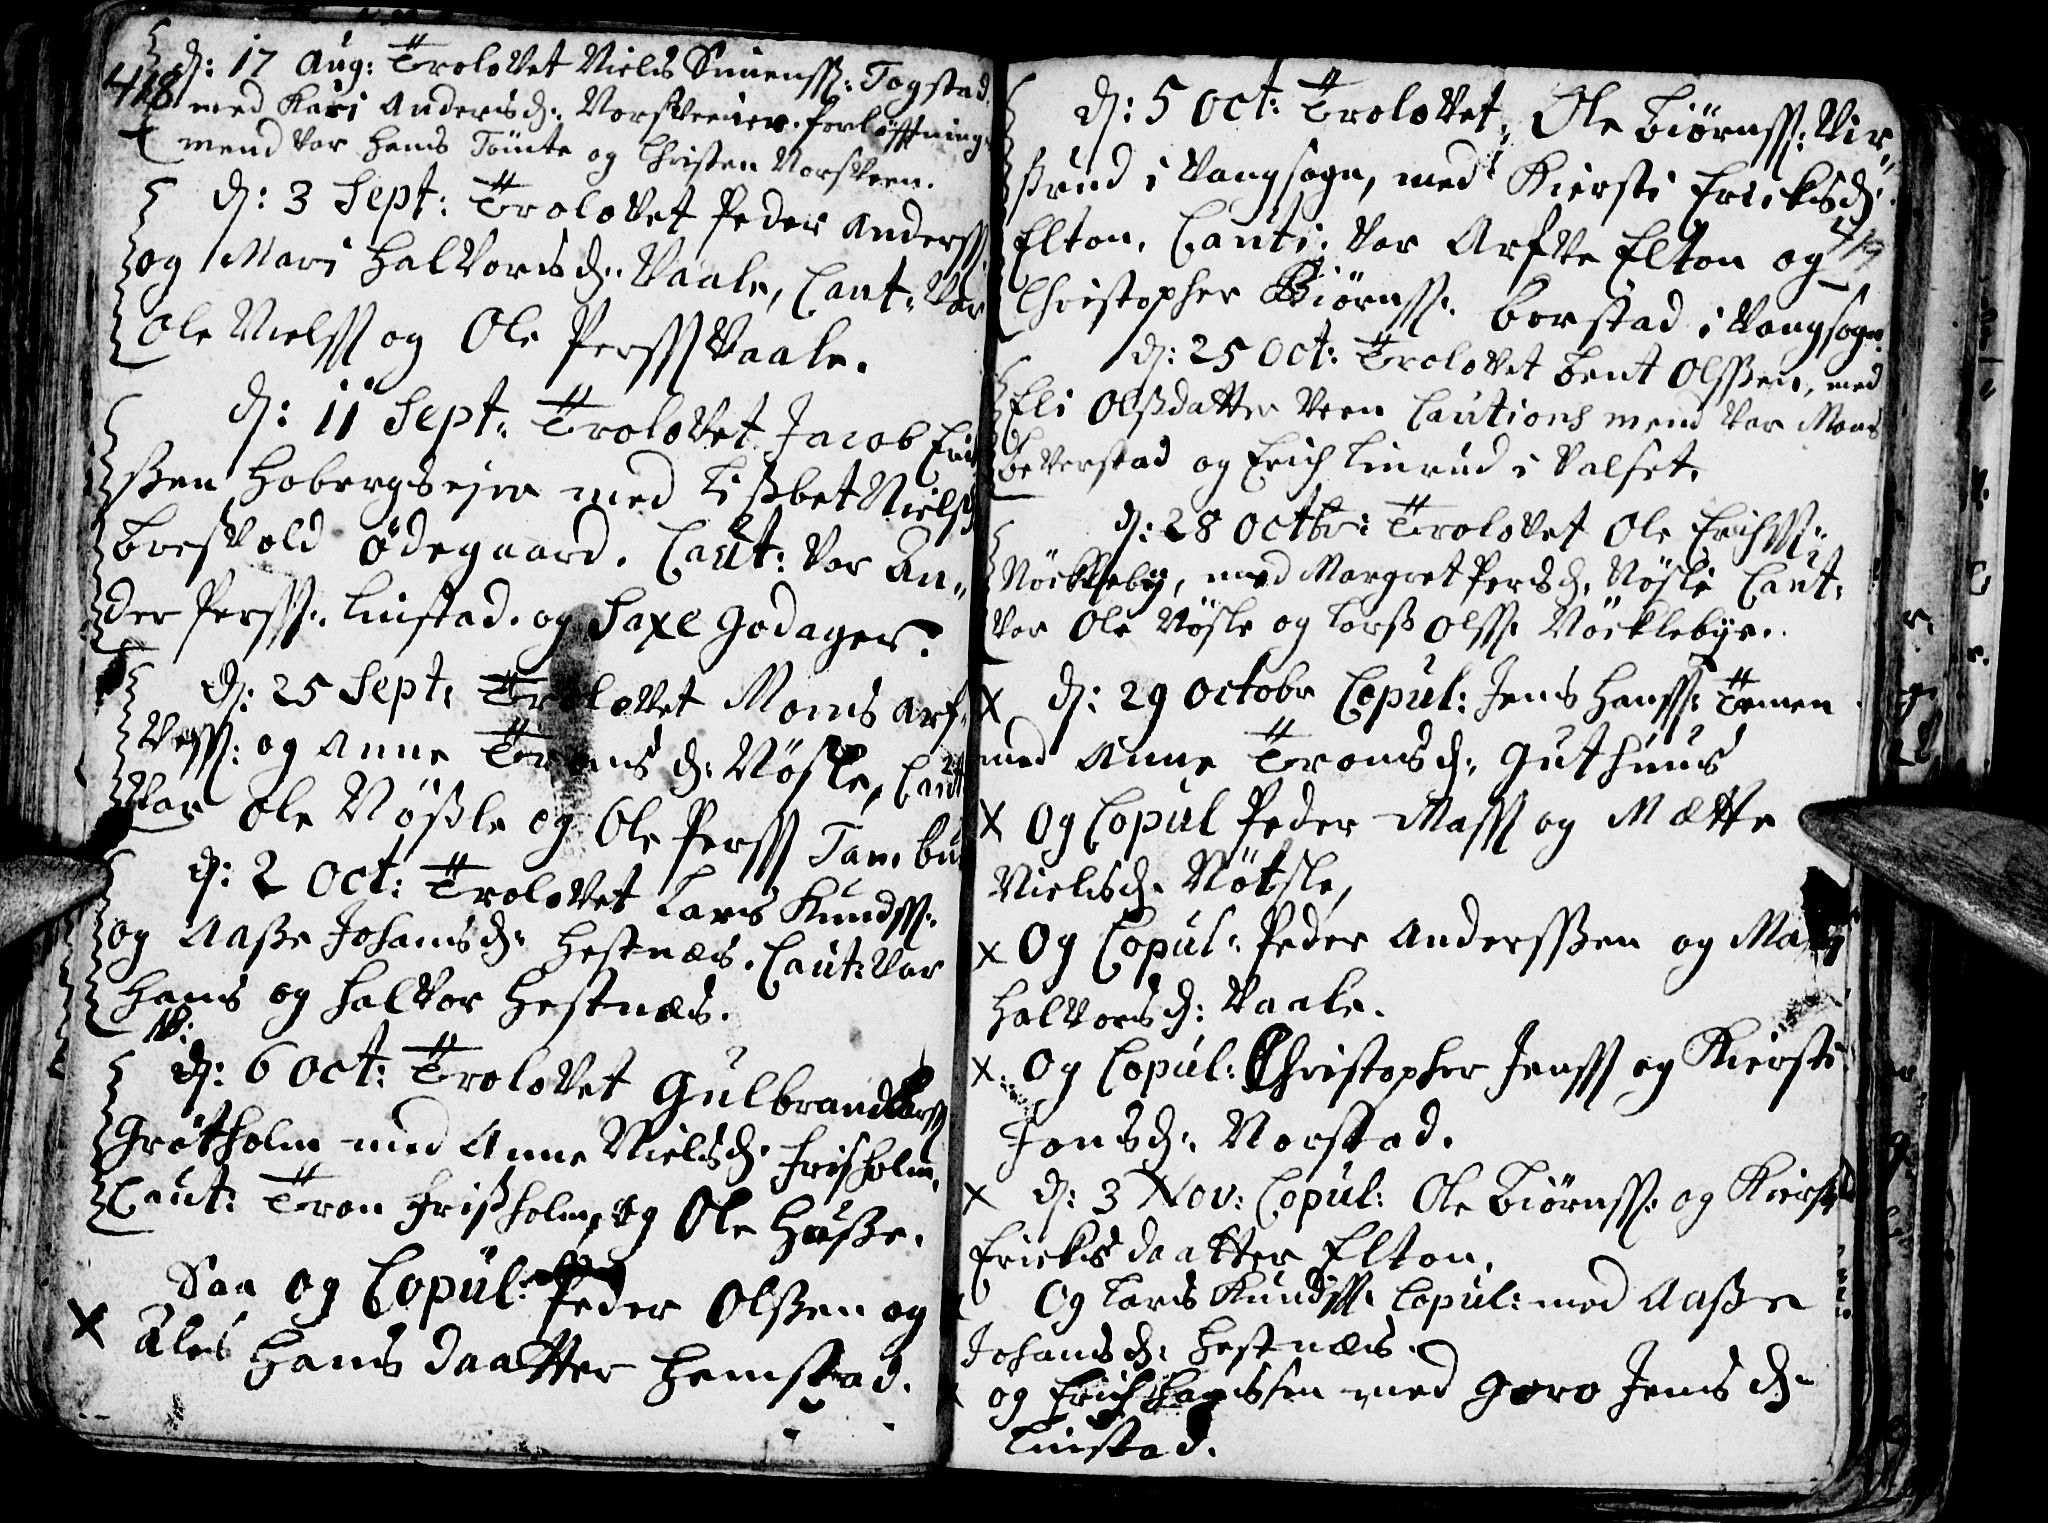 418
d: 17 Aug: Trolovet Niels Simenss: Togstad
med Kari Andersd: Norsveen. forløftnings
mend var Hans Tömte og Christen Norsveen.
d: 3 Sept: Trolovet Peder Anderss:
og Mari Halvorsd: Vaale, Caut: var
Ole Nielss og Ole Perss Vaale.
d: 11 Sept: Trolovet Jacob Erich
ssen Hobergsejer med Lissbet Niels
Bresvold ødegaard. Caut: var An„
der Perss: Linstad. og Saxe Godager.
d: 25 Sept: Trolovet Mons Arf„
vess: og Anne Tronsd: Nøsle, Caut
var Ole Nøssle og Ole Perss
d: 2 Oct: Trolovet Lars Knudss:
og Aasse Johansd: Hestnæs. Caut: var
Hans og Halvor Hestnæs.
NB:
d: 6 Oct: Trolovet Gulbrand Larss
Grøtholm med Anne Nielsd: Frisholm,
Caut: Tron Frissholm, og Ole Husse.
Saa og Copul: Peder Olssen og
Ales Hans daatter Hemstad.
d: 5 Oct: Trolovet, Ole Biørnss: Vir„
srud i Vangsogn, med Kiersti Ericksd:
Elton, Cauti: var Arfve Elton og
419
Christopher Biørnss. Borstad i Vangsogn.
d: 25 Oct: Trolovet Bent Olssen, med
Eli Olssdatter Veen Cautions mend var Mons
Beverstad og Erich Linrud i Valset.
d: 28 Octbr: Trolovet Ole Erichss:
Nöcklebÿ, med Margret Persd: Nösle Caut:
var Ole Nösle og Larss Olss: Nöcklebÿe.
d: 29 Octobr Copul: Jens Hanss: Temen
med Anne Tronsd: Guthuus
Og Copul Peder Mass og Mætte
Nielsd: Nötsle,
Og Copul: Peder Anderssen og
Halvorsd: Vaale.
Og Copul: Christopher Jenss og Kiersti
Jonsd: Norstad.
d: 3 Nov: Copul: Ole Biørnss: og Kiersti
Ericks daatter Elton.
Og Lars Knudss: Copul: med Aasse
Johansd: Hestnæs.
og Erich med Goro Jens d:
Linstad.